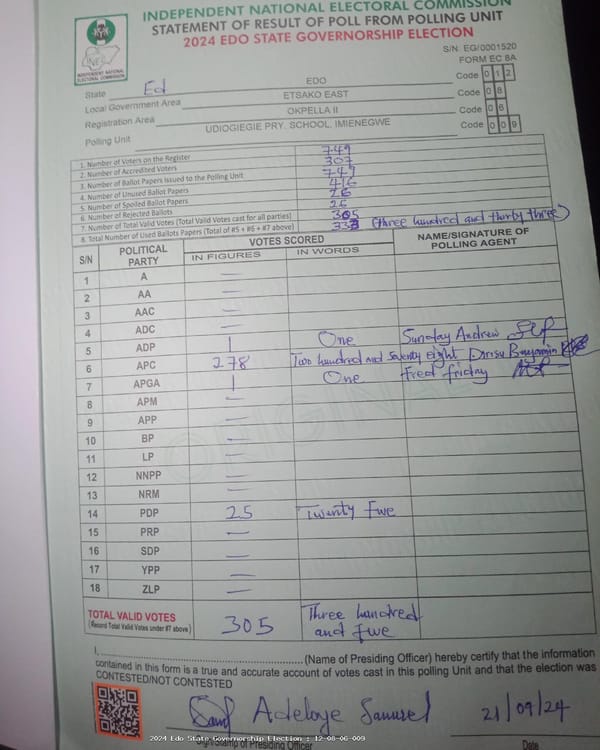 INDEPENDENT NATIONAL ELECTORAL COMMISSION
STATEMENT OF RESULT OF POLL FROM POLLING UNIT
2024 EDO STATE GOVERNORSHIP ELECTION
INEC
INDEPENDENT NATIONAL ELECTORAL COMMISSION
S/N: EG/0001520
FORM EC 8A
State Ed EDO Code 0 1 2
Local Government Area ETSAKO EAST Code 0 8
Registration Area OKPELLA II Code 0 6
Polling Unit UDIOGIEGIE PRY. SCHOOL, IMIENEGWE Code 0 0 9
1. Number of Voters on the Register 749
2. Number of Accredited Voters 307
3. Number of Ballot Papers Issued to the Polling Unit 749
4. Number of Unused Ballot Papers 416
5. Number of Spoiled Ballot Papers 26
6. Number of Rejected Ballots
7. Number of Total Valid Votes (Total Valid Votes cast for all parties) 305
8. Total Number of Used Ballots Papers (Total of #5 + #6 + #7 above) 333 (three hundred and thirty three)
S/N POLITICAL PARTY VOTES SCORED NAME/SIGNATURE OF POLLING AGENT
IN FIGURES IN WORDS
1 A —
2 AA —
3 AAC —
4 ADC —
5 ADP 1 One Sunday Andrew
6 APC 278 Two hundred and seventy eight Benjamin
7 APGA 1 One Fred friday
8 APM —
9 APP —
10 BP —
11 LP —
12 NNPP —
13 NRM —
14 PDP 25 Twenty Five
15 PRP —
16 SDP —
17 YPP —
18 ZLP —
TOTAL VALID VOTES 305 Three hundred
(Record Total Valid Votes under #7 above) and Five
I, (Name of Presiding Officer) hereby certify that the information
contained in this form is a true and accurate account of votes cast in this polling Unit and that the election was
CONTESTED/NOT CONTESTED
Adeloye Samuel 21/09/24
Sign/Stamp of Presiding Officer Date
2024 Edo State Governorship Election : 12-08-06-009